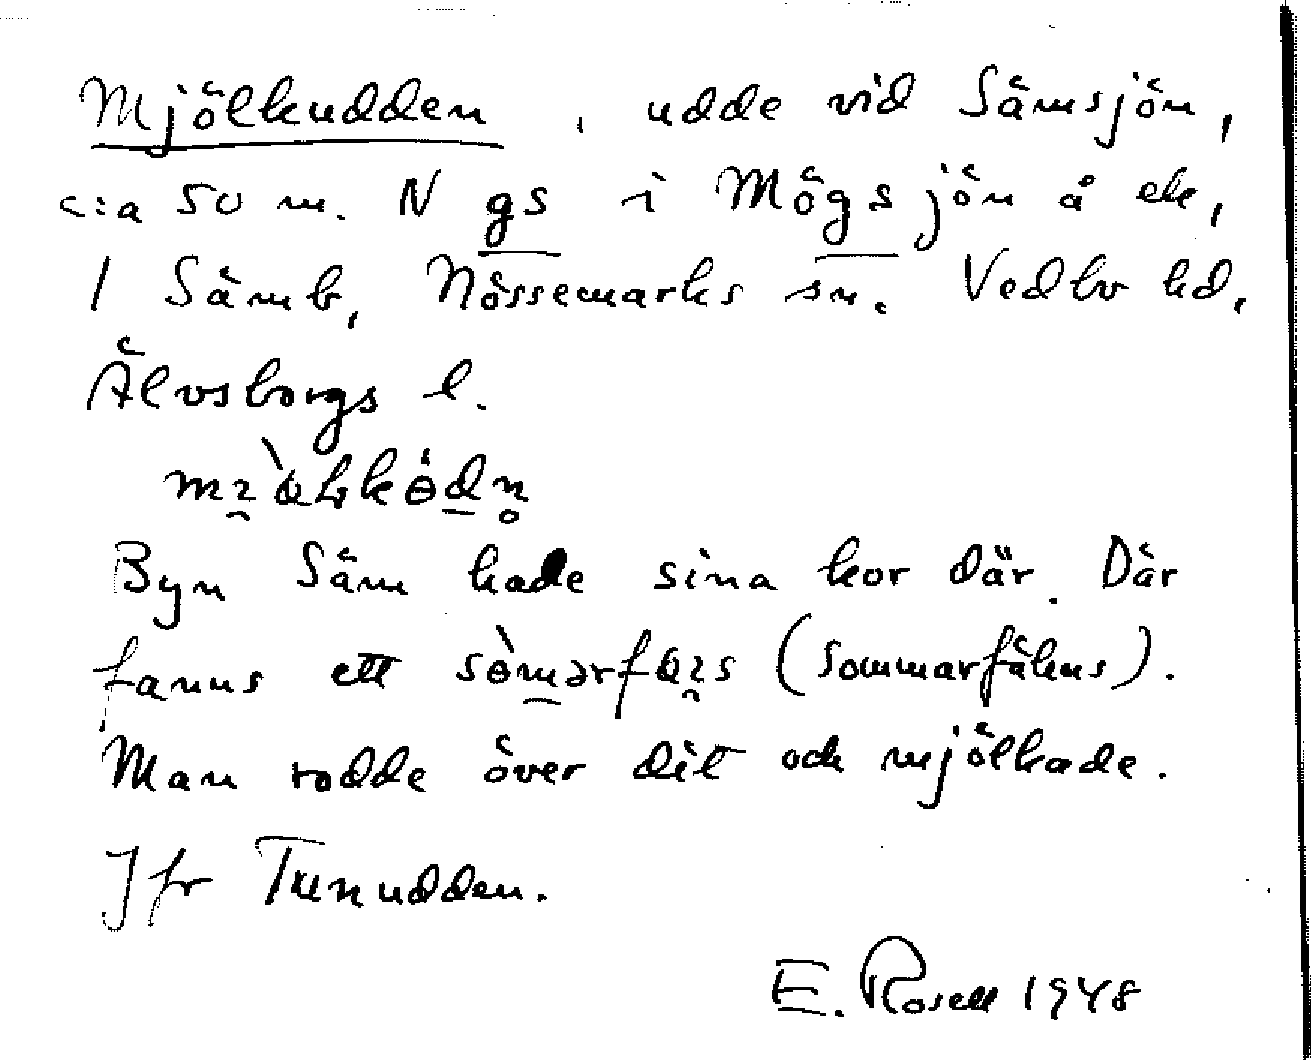 Mjölkudden, udde vid Sämsjön,
c:a 50 m. N gs i Mögsjön å ek,
1 Säm b, Nössemarks sn. Vedbo hd,
Älvsborgs l.
Byn Säm hade sina kor där. Där
fanns ett (sommarfähus).
Man rodde över dit och mjölkade.
Jfr Tunudden.
E. Rosell 1948